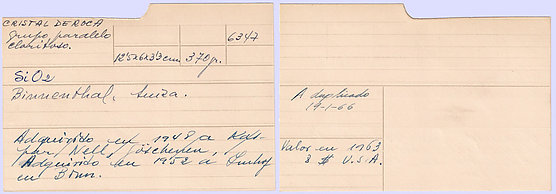 CRISTAL DE ROCA
Grupo paralelo
cloritoso.
12'5x6x3'3 cm.
370 gr.
6347
SiO2
Binnenthal, Suiza.
Adquirido en 1948 a Kas-
par Nell, Göschenen,
Adquirido en 1952 a Imhof
en Binn.
A duplicado
19-1-66
Valor en 1963
8 $ U.S.A.